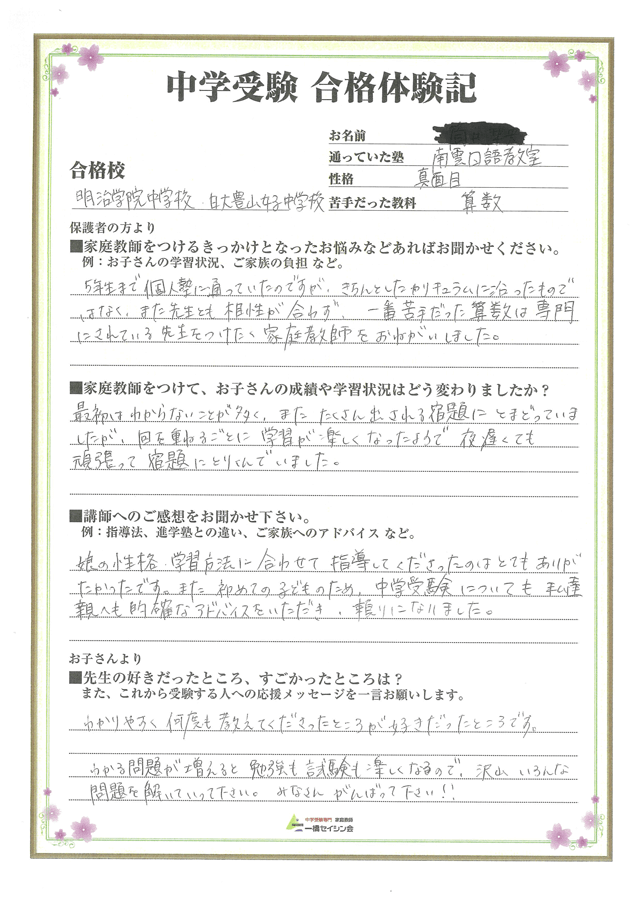 中学受験 合格体験記
お名前
通っていた塾 南雲国語教室
性格 真面目
合格校
明治学院中学校・日大豊山女子中学校 苦手だった教科 算数
保護者の方より
■家庭教師をつけるきっかけとなったお悩みなどあればお聞かせください。
例：お子さんの学習状況、ご家族の負担 など。
5年生まで個人塾に通っていたのですが、きちんとしたカリキュラムに沿ったもので
はなく、また先生とも相性が合わず、一番苦手だった算数は専門
にされている先生をつけたく家庭教師をおねがいしました。
■家庭教師をつけて、お子さんの成績や学習状況はどう変わりましたか？
最初はわからないことが多く、また たくさん出される宿題に とまどっていま
したが、回を重ねるごとに 学習が楽しくなったようで 夜遅くても
頑張って宿題にとりくんでいました。
■講師へのご感想をお聞かせ下さい。
例：指導法、進学塾との違い、ご家族へのアドバイス など。
娘の性格・学習方法に合わせて指導してくださったのはとてもありが
たかったです。また 初めての子どものため、中学受験についても 私達
親へも的確なアドバイスをいただき、頼りになりました。
お子さんより
■先生の好きだったところ、すごかったところは？
また、これから受験する人への応援メッセージを一言お願いします。
わかりやすく 何度も教えてくださったところが好きだったところです。
わかる問題が増えると 勉強も試験も楽しくなるので、沢山 いろんな
問題を解いていって下さい。みなさん がんばって下さい!!
中学受験専門 家庭教師
一橋セイシン会